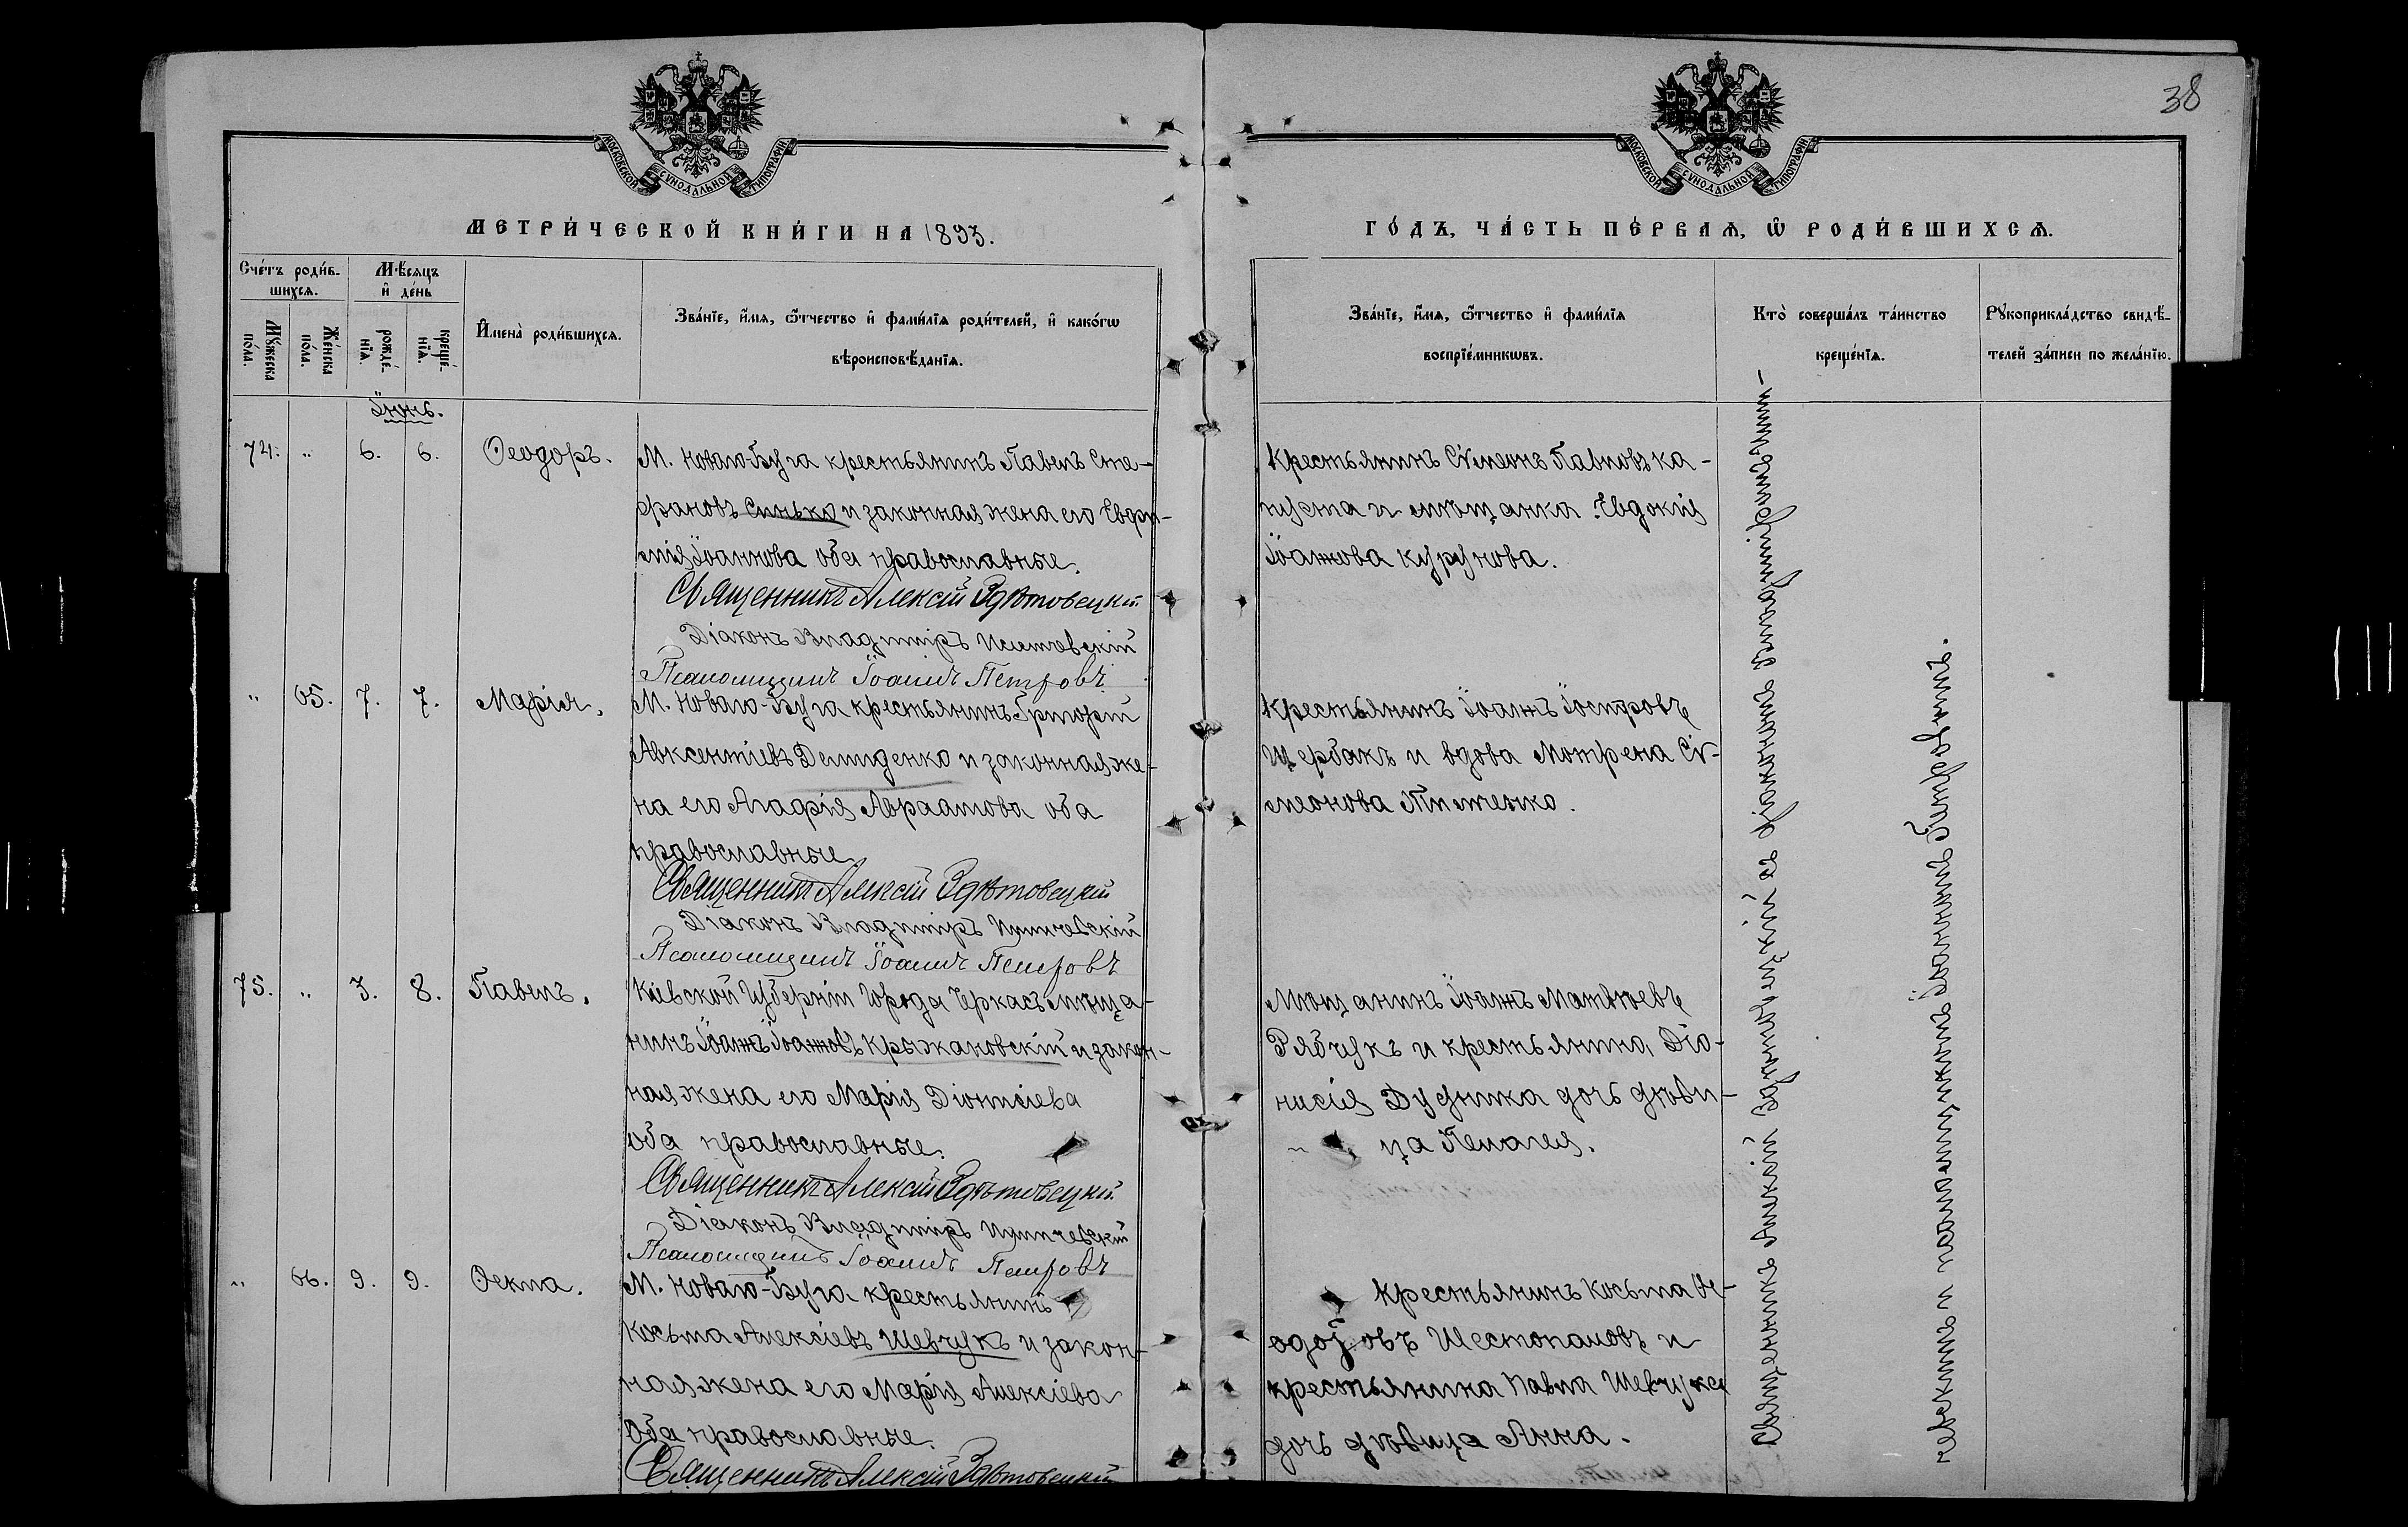 38
МОСКОВСКОЙ СУНОДАЛЬНОЙ ТИПОГРАФІИ
МОСКОВСКОЙ СУНОДАЛЬНОЙ ТИПОГРАФІИ
МЕТРИ́ЧЕСКОЙ КНИ́ГИ НА 1893.
ГО́ДЪ, ЧА́СТЬ ПЕ́РВАѦ, Ѡ҆ РОДИ́ВШИХСѦ.
Сче́тъ роди́в-
шихсѧ.
Мꙋ́жеска по́ла.
Же́нска по́ла.
Мѣ́сѧцъ
и҆ де́нь
рожде́-
нїѧ.
креще́-
нїѧ.
И҆мена̀ роди́вшихсѧ.
Зва́нїе, и҆́мѧ, ѻ҆́тчество и҆ фами́лїѧ роди́телей, и҆ како́гѡ
вѣроисповѣ́данїѧ.
Зва́нїе, и҆́мѧ, ѻ҆́тчество и҆ фами́лїѧ
воспрїе́мникѡвъ.
Кто̀ соверша́лъ та́инство
креще́нїѧ.
Рꙋкоприкла́дство свидѣ́-
телей за́писи по жела́нїю.
Іюнь.
74. „ 6. 6. Ѳеодоръ.
М. Новаго-Буга крестьянинъ Павелъ Сте-
фановъ Синько и законная жена его Евфи-
мія Іоаннова оба православные.
Священникъ Алексій
Діаконъ Владиміръ
Псаломщикъ Іоаннъ Петровъ
Крестьянинъ Сѵмеонъ Павловъ Ка-
пуста и мѣщанка Евдокія
Іоаннова Курунова.
„ 65. 7. 7. Марія.
М. Новаго-Буга крестьянинъ Григорій
Авксентіевъ Демиденко и законная же-
на его Агафія Авраамова оба
православные.
Священникъ Алексій
Діаконъ Владиміръ
Псаломщикъ Іоаннъ Петровъ
Крестьянинъ Іоаннъ Іосифовъ
Щербакъ и вдова Мотрена Сѵ-
меонова
75. „ 3. 8. Павелъ.
Кіевской Губерніи Города Черкасъ мѣща-
нинъ Іоаннъ Іоанновъ Крыжановскій и закон-
ная жена его Марія Діонисіева
оба православные.
Священникъ Алексій
Діаконъ Владиміръ
Псаломщикъ Іоаннъ Петровъ
Мѣщанинъ Іоаннъ Матѳѣевъ
Рябчукъ и крестьянина Діо-
нисія Дудника дочь дѣви-
ца Пелагея.
„ 66. 9. 9. Ѳекла.
М. Новаго-Буга крестьянинъ
Косьма Алексіевъ Шевчукъ и закон-
ная жена его Марія Алексіева
Оба православные.
Священникъ Алексій
Крестьянинъ Косьма Ѳе-
одоровъ Шестопаловъ и
крестьянина Павла Шевчука
дочь дѣвица Анна.
Священникъ Алексій съ діакономъ Владиміромъ
и псаломщикомъ Іоанномъ Петровымъ.